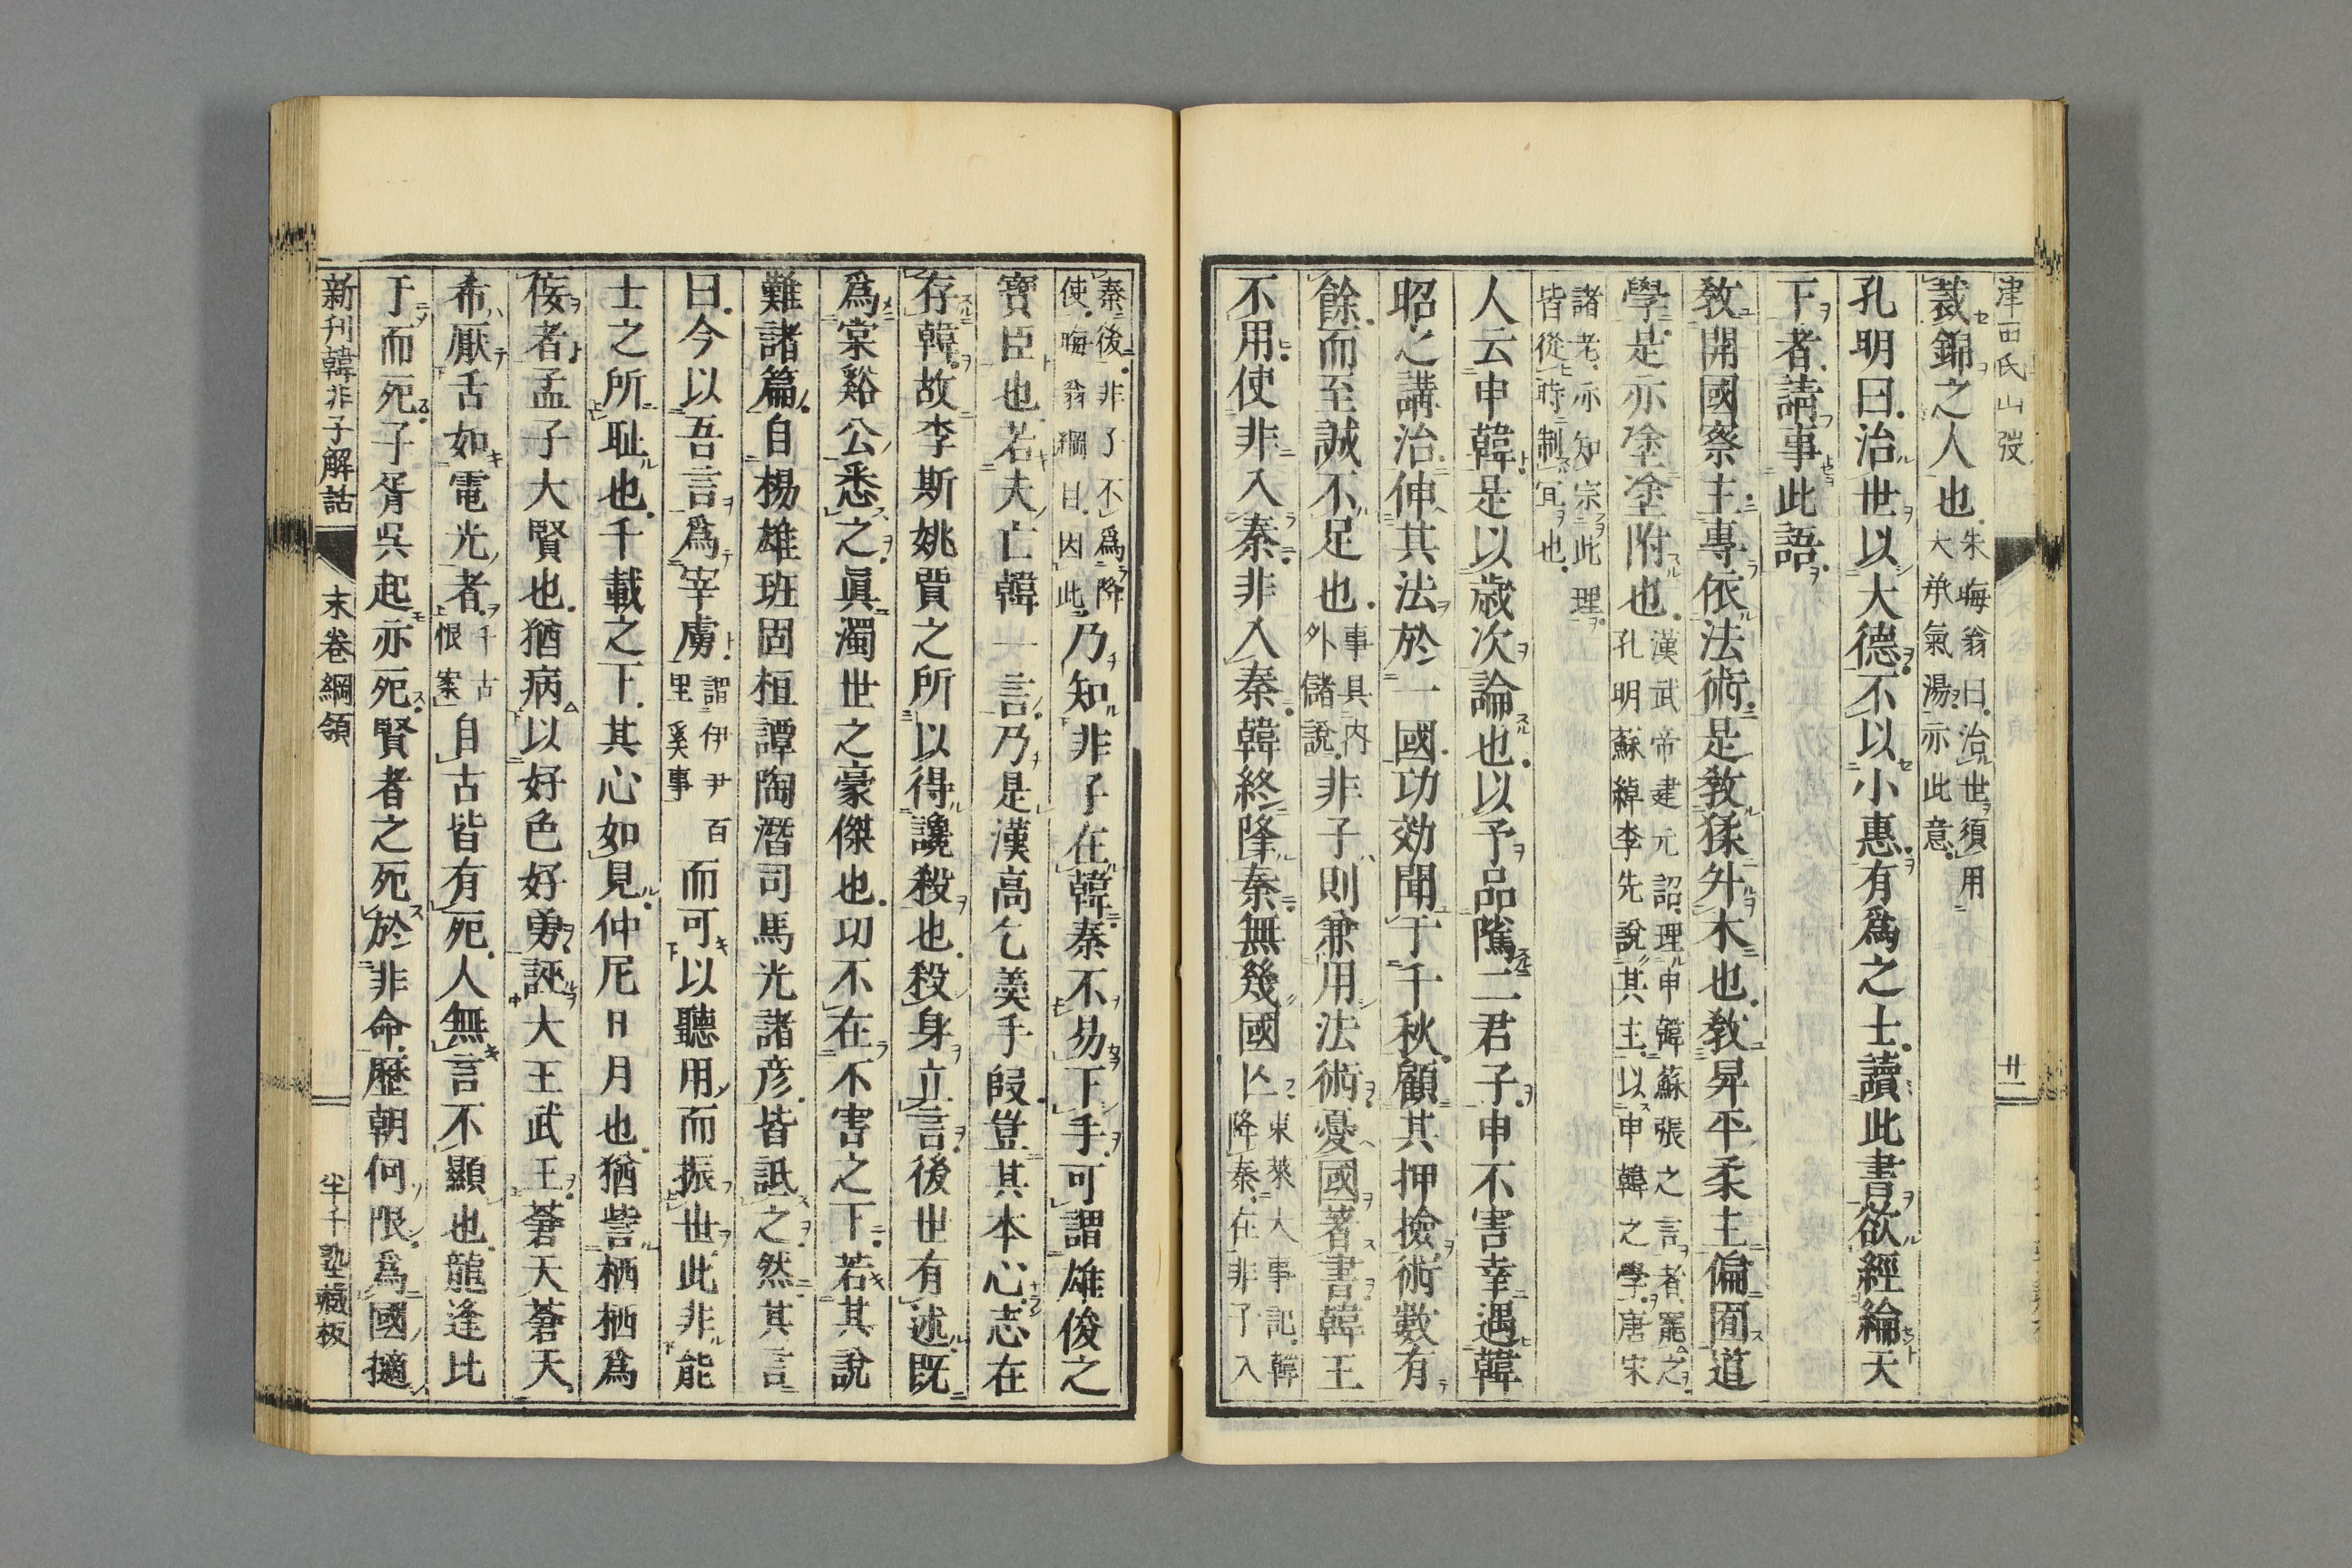 津西氏山發
廿一
裁錦之人也朱晦翁曰治世須用大承氣湯亦此意
孔明曰治世以大德不以小惠有爲之士讀此書欲經綸天
下者請事此語
教開國察主專依法術是教猱升木也教昇平柔主偏囿道
學是亦塗塗附也漢武帝建元詔理申韓蘇張之言者罷之孔明蘇綽李先說其主以申韓之學唐宋
諸老亦知宗此理皆從時制宜也
人云申韓是以歲次論也以予品隲二君子申不害幸遇韓
昭之講治伸其法於一國功効聞于千秋顧其押撿術數有
餘而至誠不足也事具內外儲說非子則兼用法術憂國著書韓王
不用使非入秦非入秦韓終降秦無幾國亾東萊大事記韓降秦在非子入
秦後非子不爲降使晦翁綱目因此乃知非子在韓秦不易下手可謂雄俊之
寶臣也若夫亡韓一言乃是漢高乞羹手段豈其本心志在
存韓故李斯姚賈之所以得讒殺也殺身立言後世有述既
爲棠谿公悉之眞濁世之豪傑也切不在不害之下若其說
難諸篇自楊雄班固桓譚陶潛司馬光諸彥皆詆之然其言
曰今以吾言爲宰虜謂伊尹百里奚事而可以聽用而振世此非能
士之所耻也千載之下其心如見仲尼日月也猶訾栖栖爲
佞者孟子大賢也猶病以好色好勇誣大王武王蒼天蒼天
希厭舌如電光者千古恨案自古皆有死人無言不顯也龍逢比
于而死子胥吳起亦死賢者之死於非命歷朝何限爲國擿
新刊韓非子解詁
末卷綱領
半千塾藏板